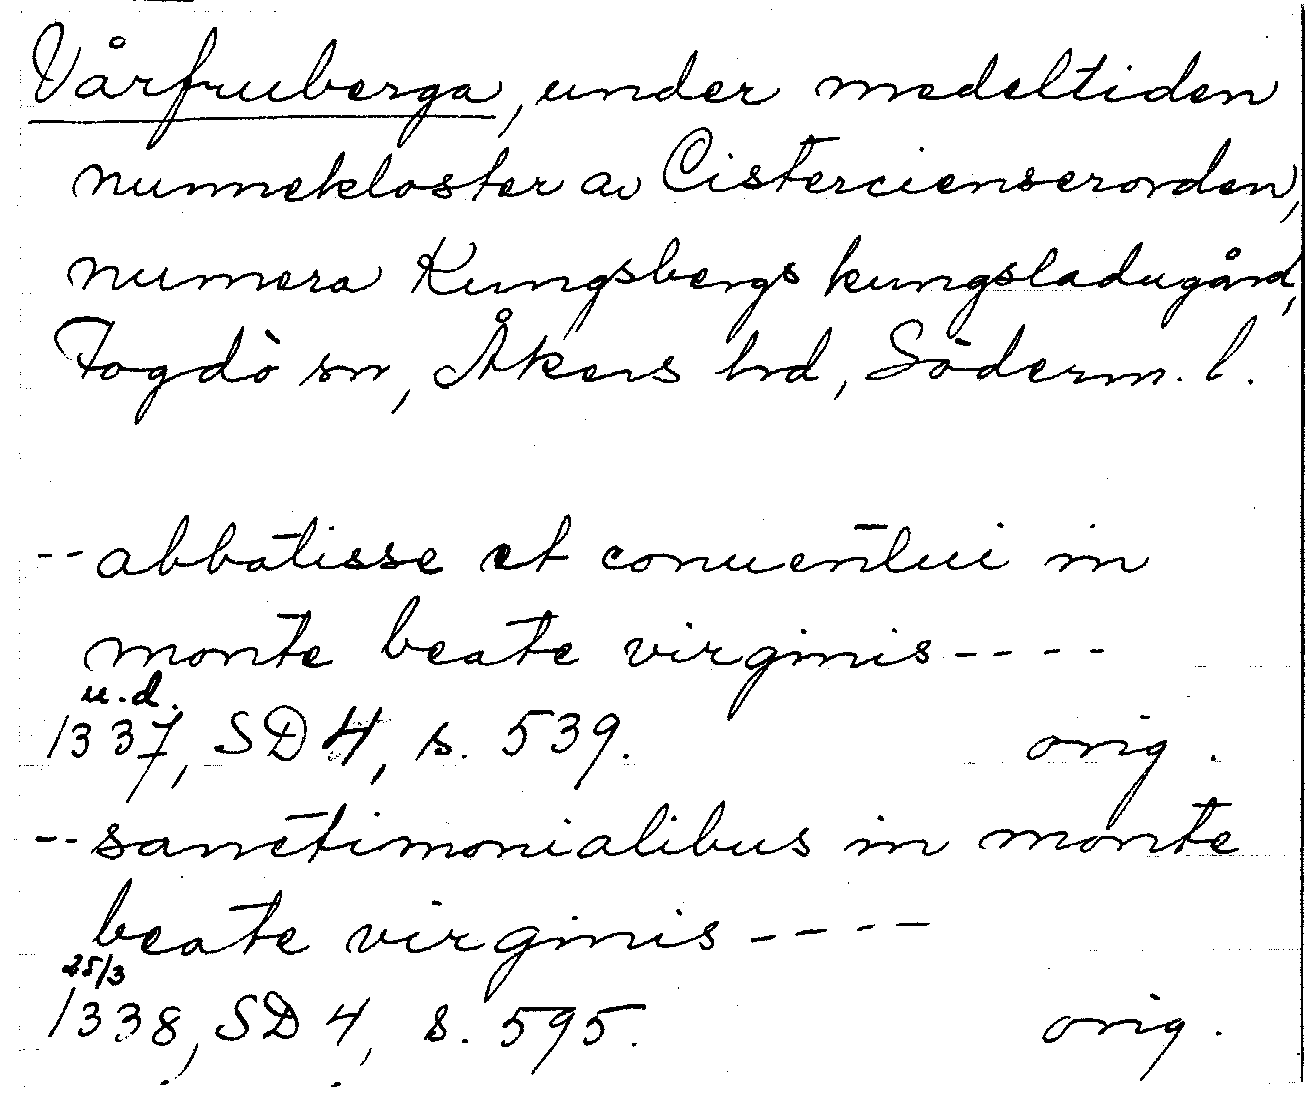 Vårfruberga, under medeltiden
nunnekloster av Cistercienserorden,
numera Kungsbergs kungsladugård,
Fogdö sn, Åkers hrd, Söderm. l.
-- abbatisse et conuentui in
monte beate virginis ----
u.d.
1337, SD 4, s. 539. orig.
-- sanctimonialibus in monte
beate virginis ----
25/3
1338, SD 4, s. 595. orig.